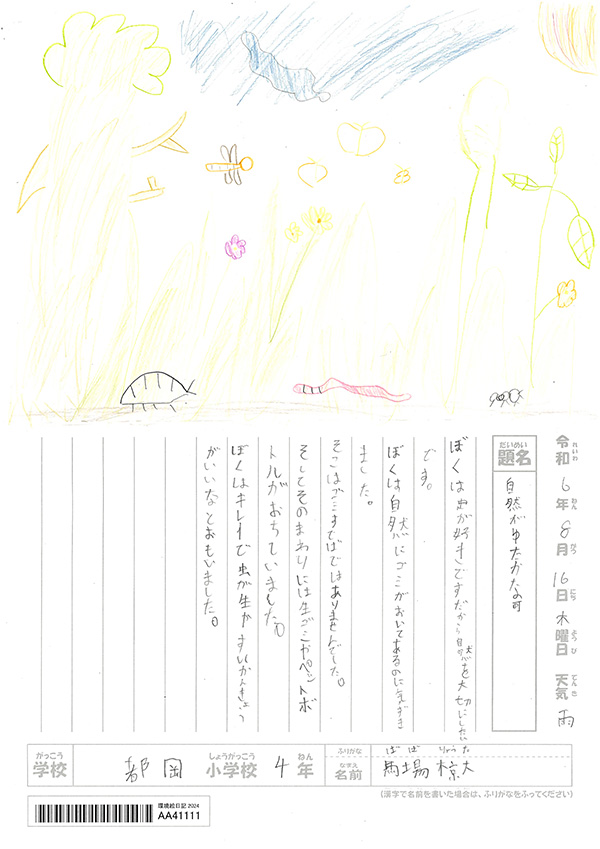 令和6年8月16日木曜日 天気雨
れいわ ねん がつ にち ようび てんき
だいめい
題名
自然がゆたかな町
ぼくは虫が好きですだから自然を大切にしたい
です。
ぼくは自然にゴミがおいてあるのに気ずき
ました。
そこはゴミすてばではありませんでした。
そしてそのまわりには生ゴミやペットボ
トルがおちていました。
ぼくはキレイで虫が生やすいかんきょう
がいいなとおもいました。
がっこう
学校
都岡
しょうがっこう
小学校
4年
ねん
ふりがな
ばば りょうた
なまえ
名前
馬場 椋大
(漢字で名前を書いた場合は、ふりがなをふってください)
環境絵日記 2024
AA41111